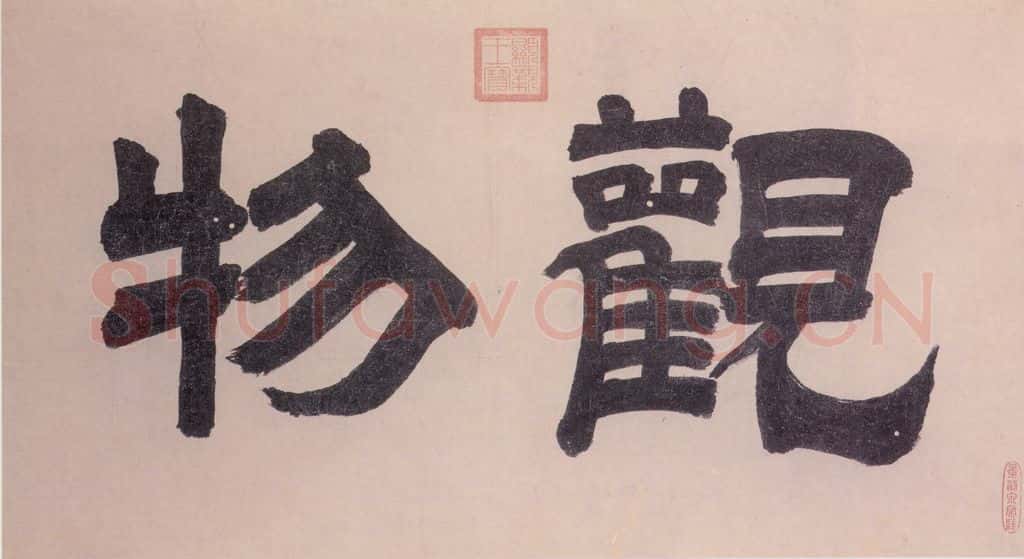 觀物
Shufawang.CN